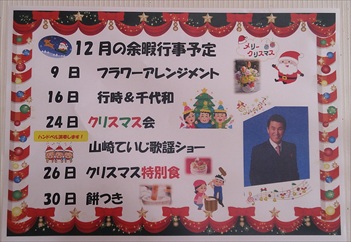 12月の余暇行事予定
メリークリスマス
9日 フラワーアレンジメント
16日 行時&千代和
24日 クリスマス会
ハンドベル演奏します!
山崎ていじ歌謡ショー
26日 クリスマス特別食
30日 餅つき